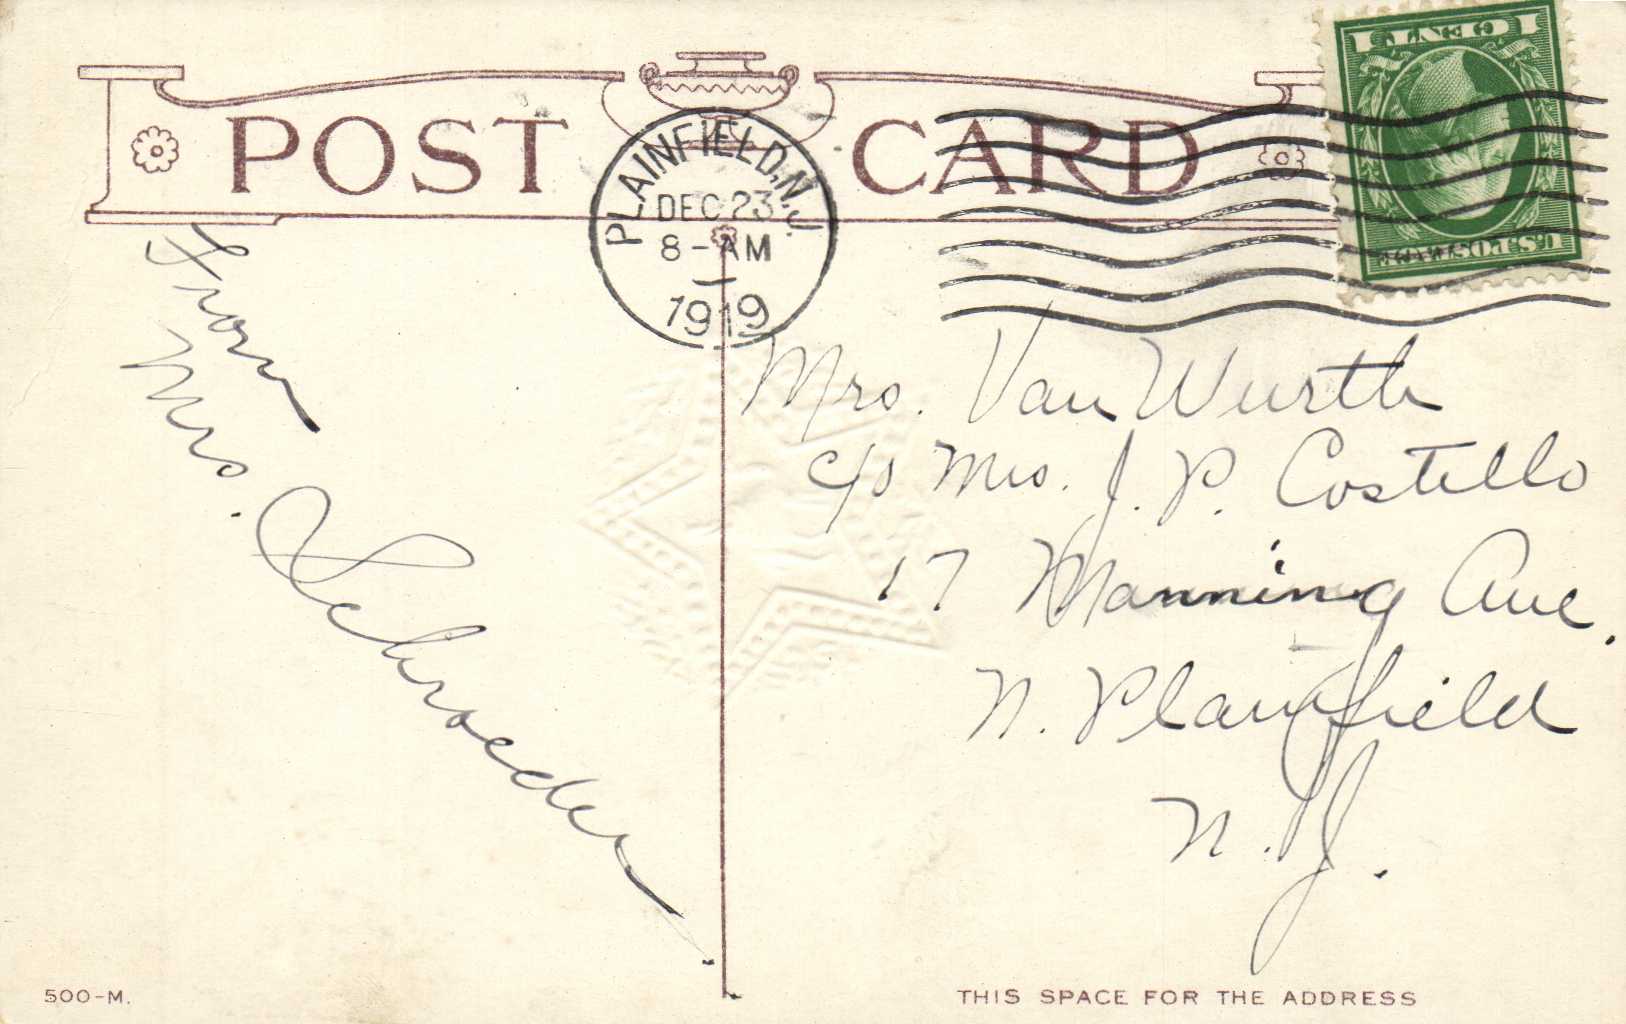 POST CARD
PLAINFIELD, N.J.
DEC 23
8-AM
1919
1 CENT 1
U.S. POSTAGE
From
Mrs.
Schroeder
Mrs. Van Wurth
c/o Mrs. J. P. Costello
17 Manning Ave.
N. Plainfield
N. J.
500-M.
THIS SPACE FOR THE ADDRESS